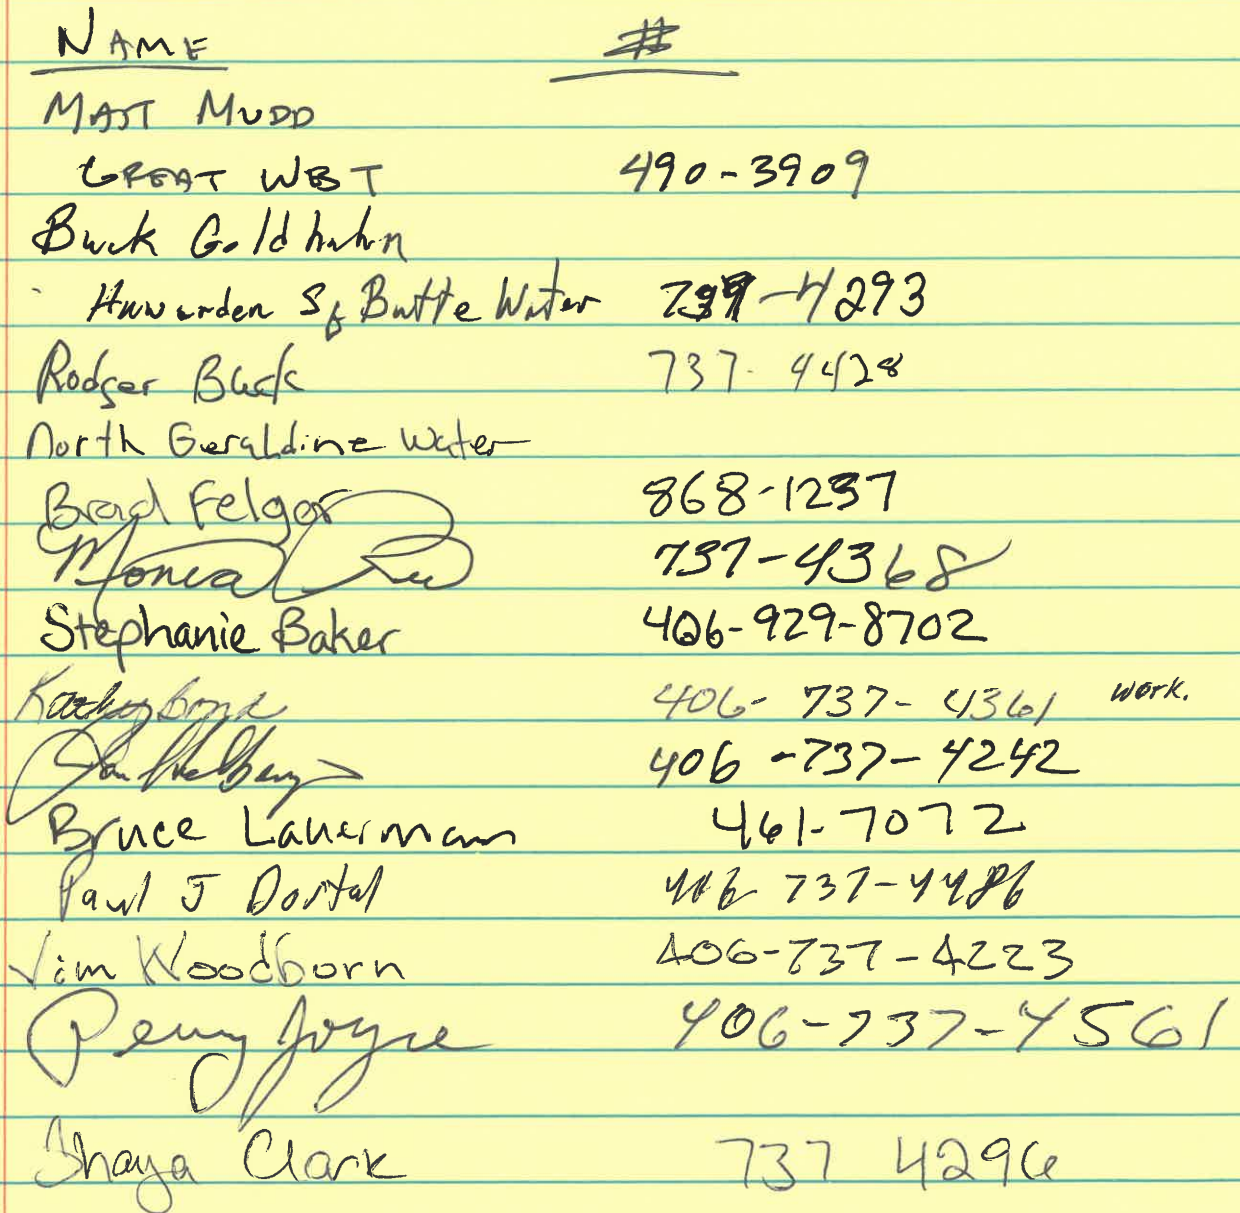 NAME #
MATT MUDD
GREAT WEST 490-3909
Buck Goldhahn
Hawarden Sq Butte Water 737-4293
Rodger Buck 737-4428
North Geraldine Water
Brad Felger 868-1237
Monica 737-4368
Stephanie Baker 406-929-8702
Kathy 406-737-4361 work.
406-737-4242
Bruce Lauerman 461-7072
Paul J Dostal 406 737-4486
Jim Woodborn 406-737-4223
Penny Joyce 406-737-4561
Shaya Clark 737 4296